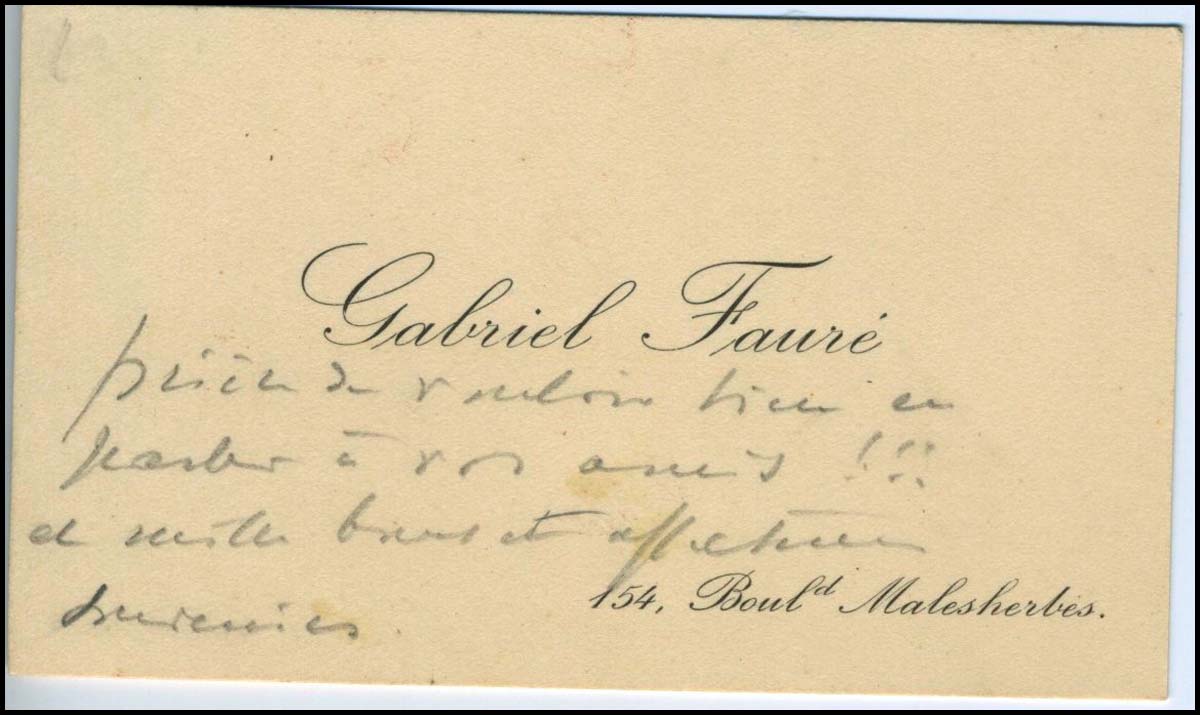 Gabriel Fauré
prière de vouloir bien en
parler à vos amis !!!
et mille bons et affectueux
souvenirs.
154, Boul^d Malesherbes.